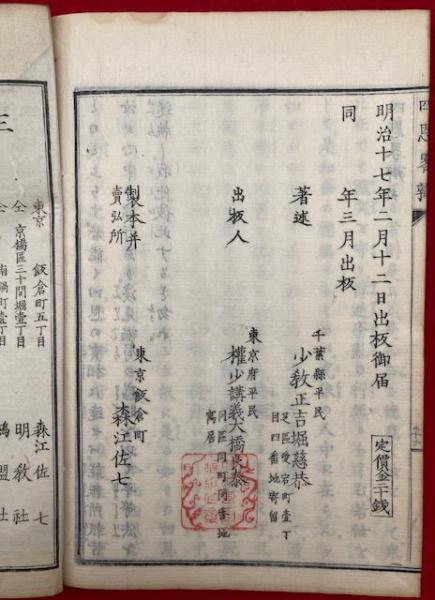 四恩畧辨
明治十七年二月十二日出板御届
同 年三月出板
定價金二十錢
著述
千葉縣平民
少敎正吉堀慈恭
芝區愛宕町壹丁
目四番地寄留
出板人
東京府平民
權少講義大橋泰
同區同町同番地
寓居
製本并
賣弘所
東京飯倉町
森江佐七
三
東京 飯倉町五丁目 森江佐七
仝 京橋區三十間堀壹丁目 明敎社
仝 町壹丁目 鴻盟社